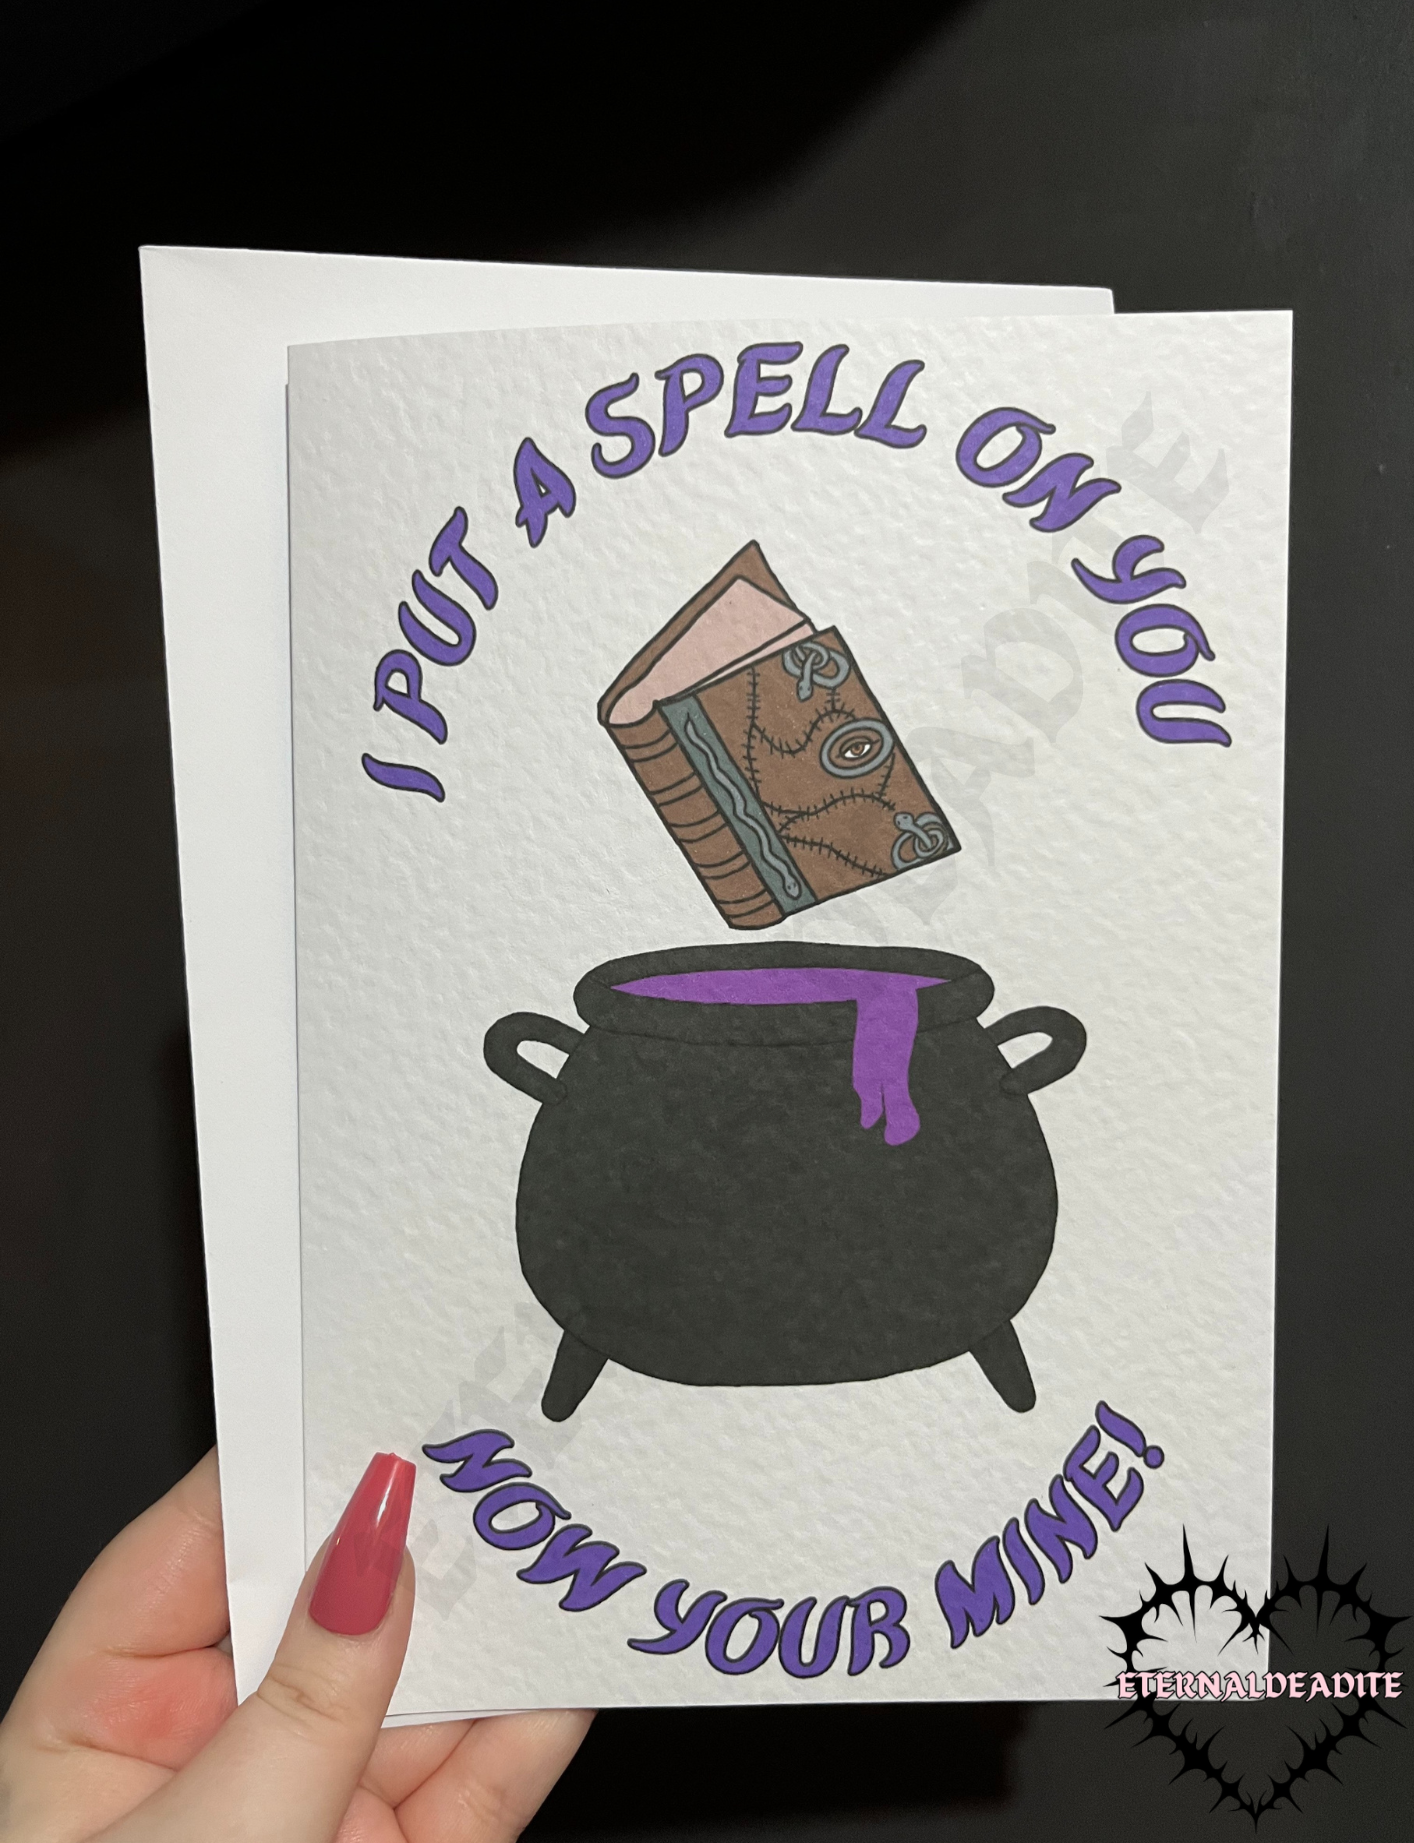 I PUT A SPELL ON YOU
NOW YOUR MINE!
ETERNALDEADITE